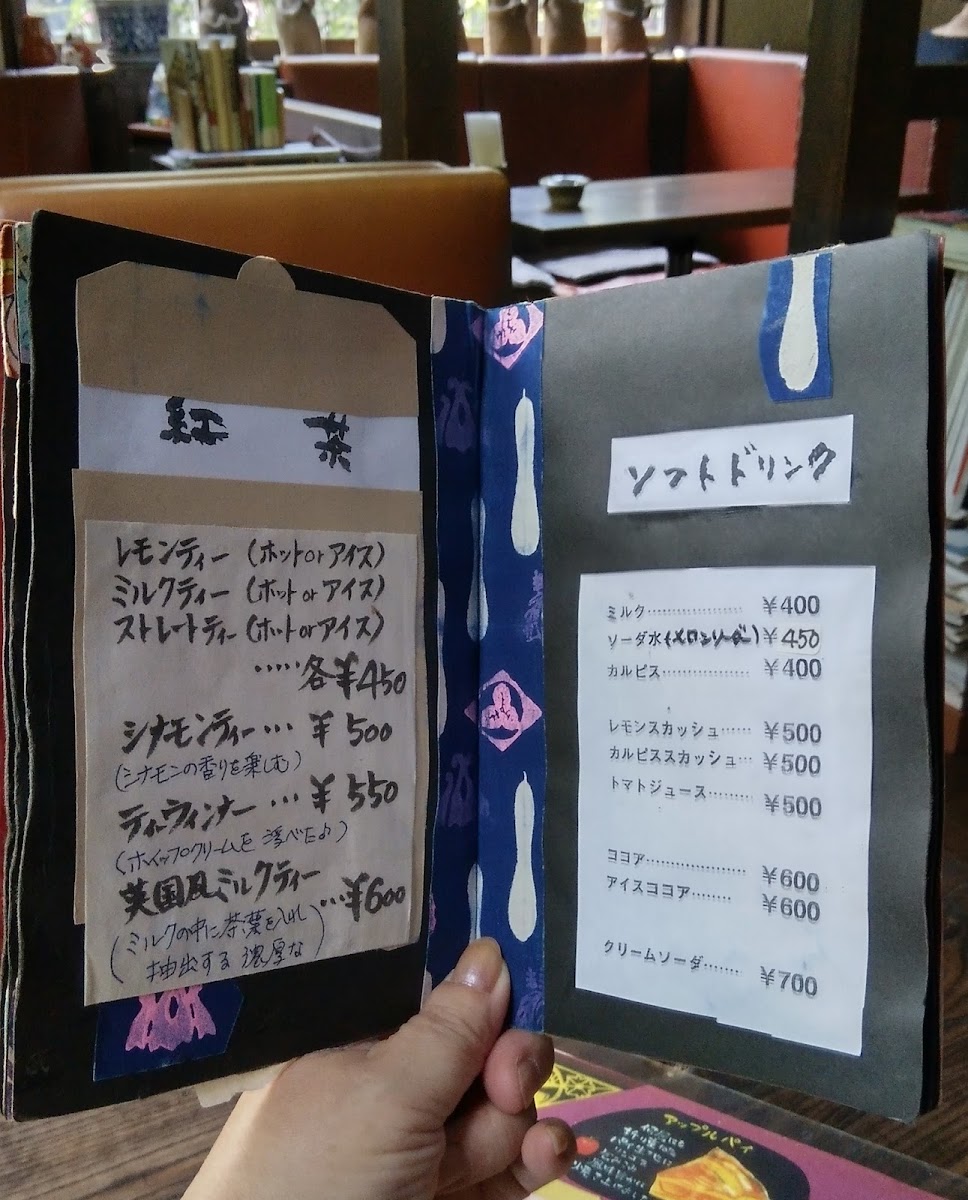 紅 茶
レモンティー (ホットorアイス)
ミルクティー (ホットorアイス)
ストレートティー (ホットorアイス)
‥‥‥各¥450
シナモンティー… ¥500
(シナモンの香りを楽しむ)
ティーウィンナー… ¥550
(ホイップクリームを浮べたよ)
英国風ミルクティー
…¥600
(ミルクの中に茶葉を入れ
抽出する濃厚な)
ソフトドリンク
ミルク………………… ¥400
ソーダ水(メロンソーダ) ¥450
カルピス……………… ¥400
レモンスカッシュ…… ¥500
カルピススカッシュ… ¥500
トマトジュース……… ¥500
ココア………………… ¥600
アイスココア………… ¥600
クリームソーダ……… ¥700
アップルパイ